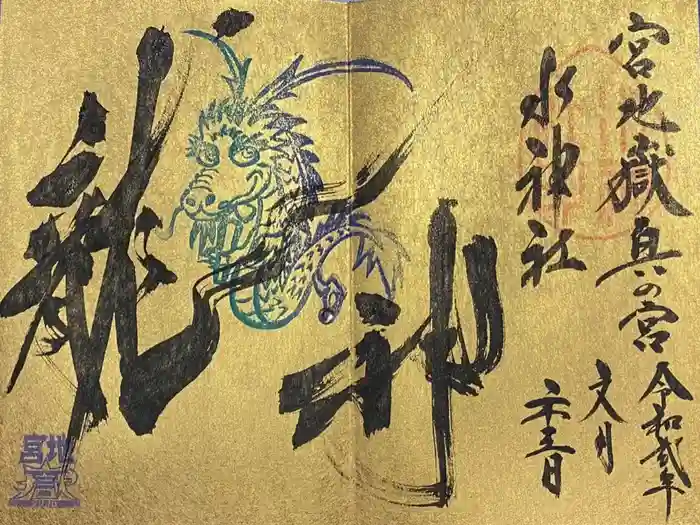 宮地嶽奥の宮
水神社
令和弐年
文月
二十三日
神龍